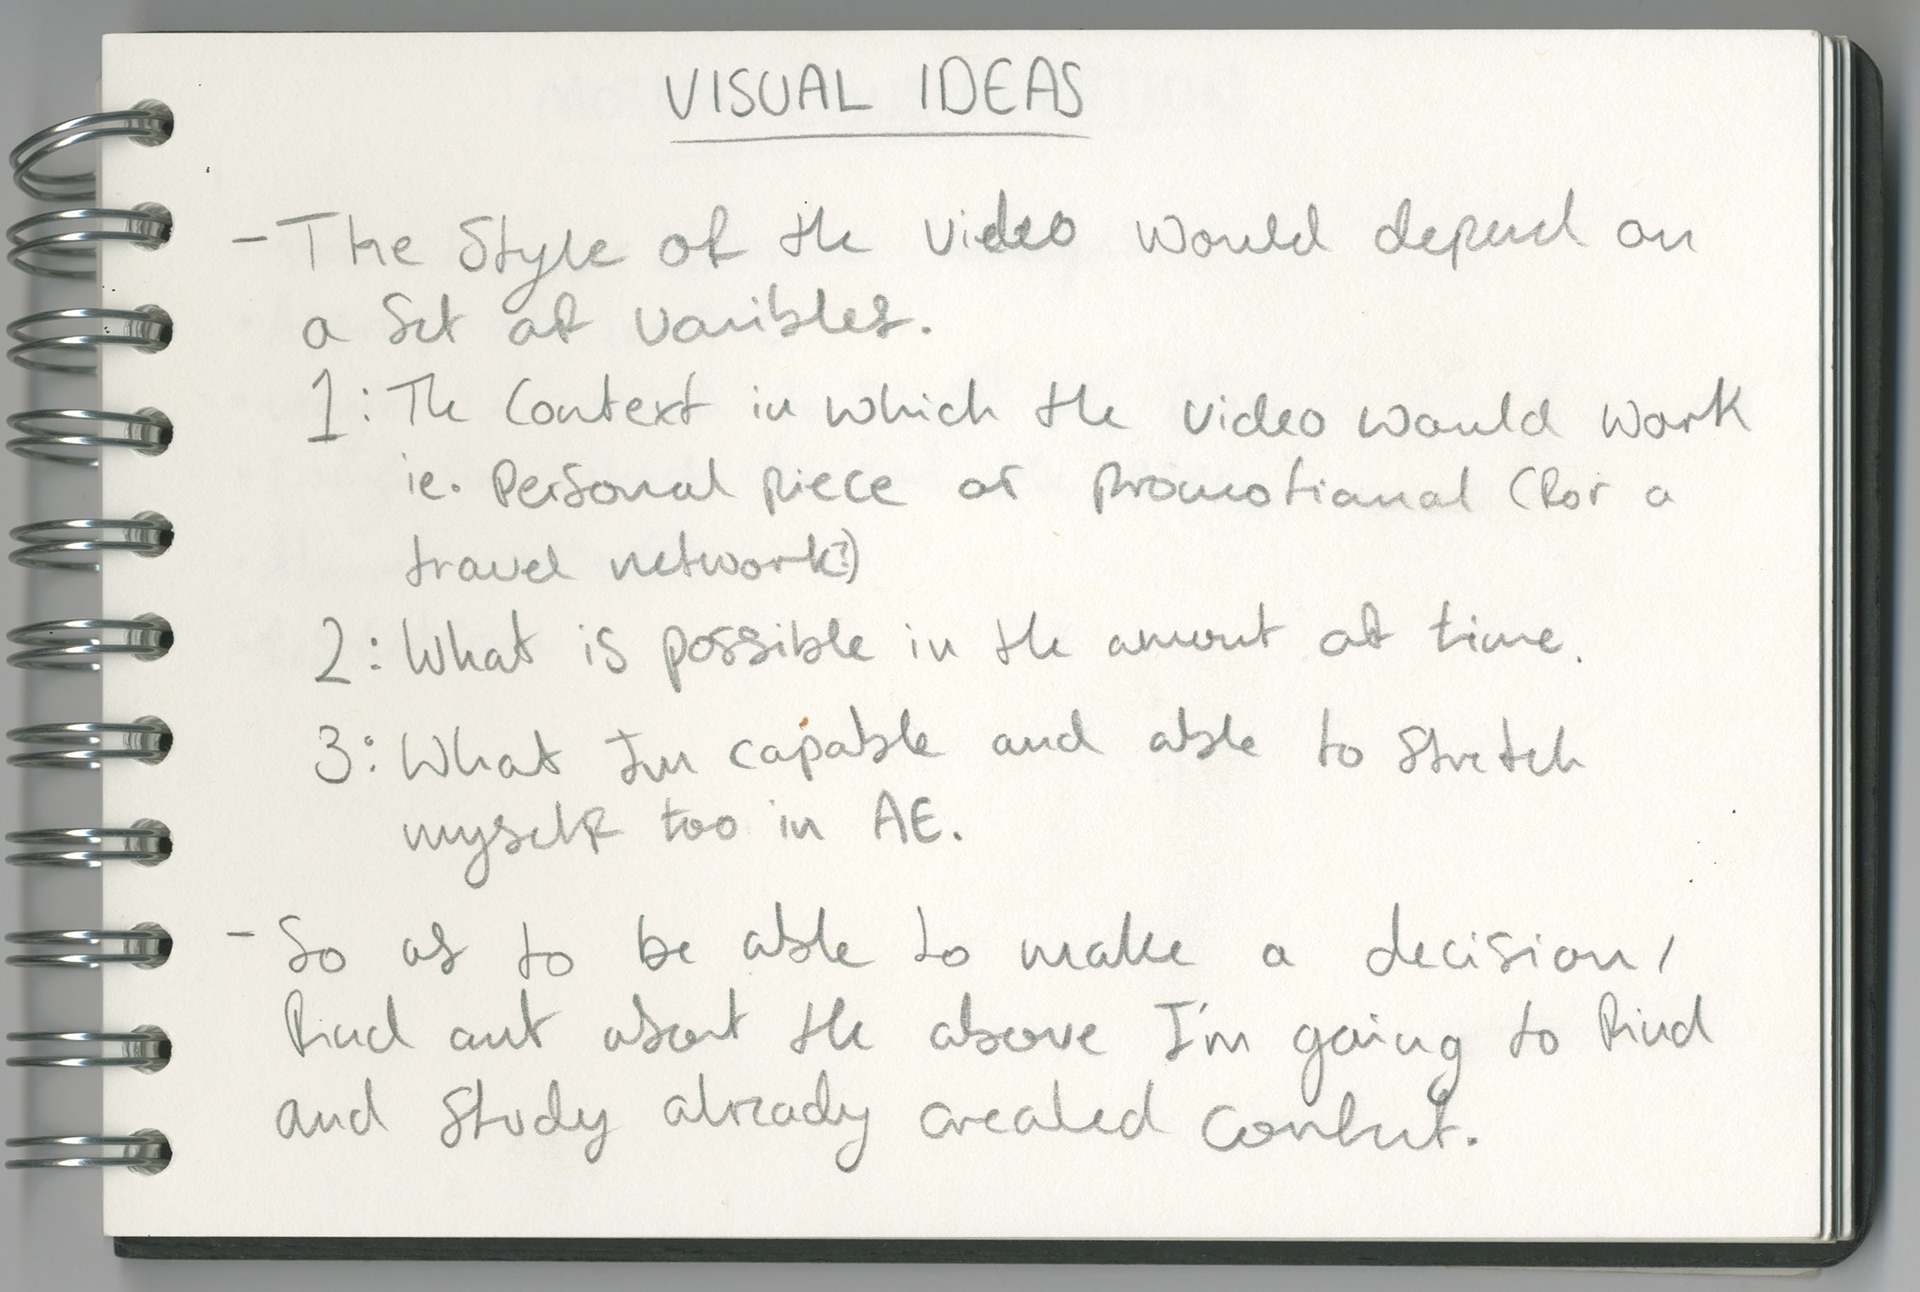 VISUAL IDEAS
- The Style of the video would depend on
a Set of varibles.
1: The Context in which the video would work
ie. Personal piece or promotional (for a
travel network?)
2: What is possible in the amount of time.
3: What Im capable and able to Stretch
myself too in AE.
- So as to be able to make a decision/
find out about the above I'm going to find
and Study already created Content.